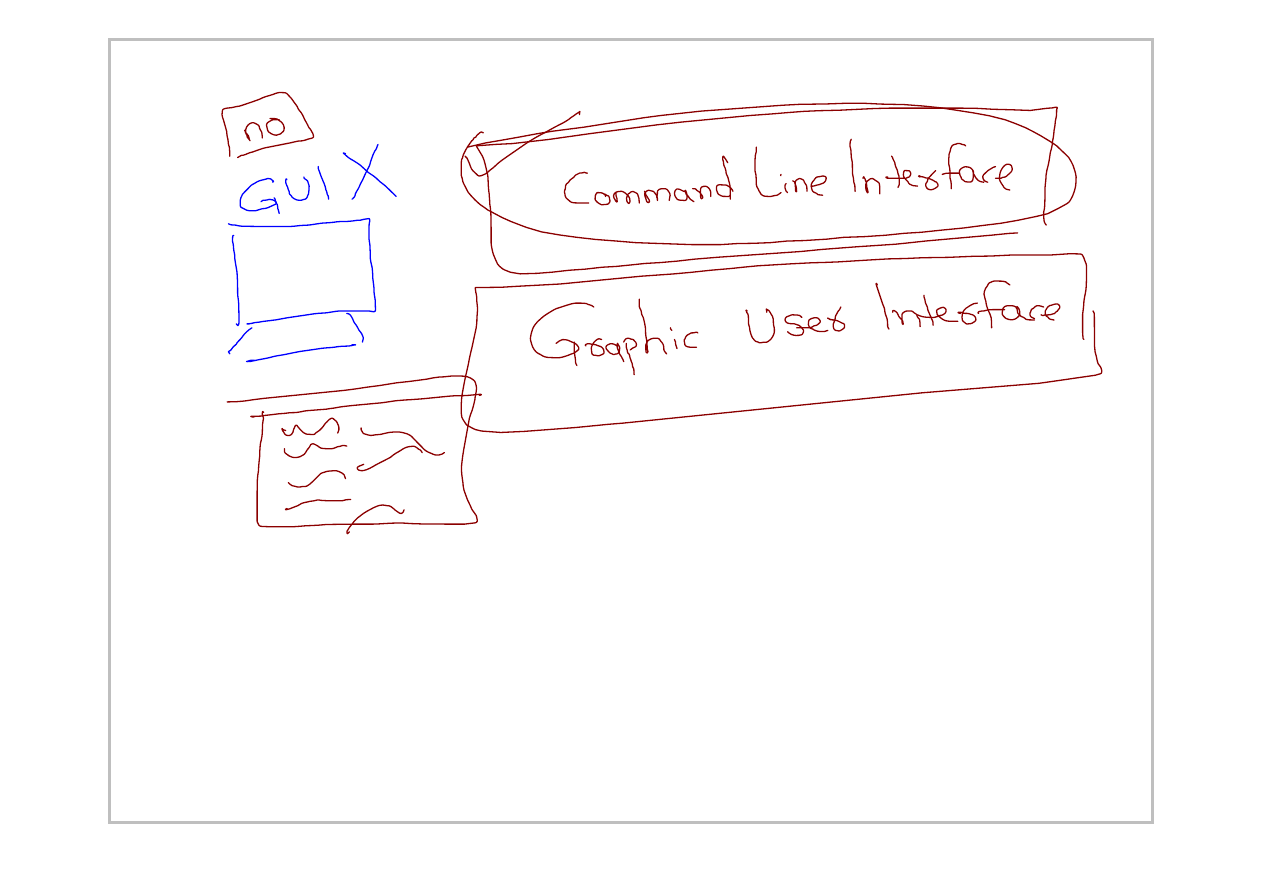 no
GUI X
Command Line Interface
Graphic User Interface